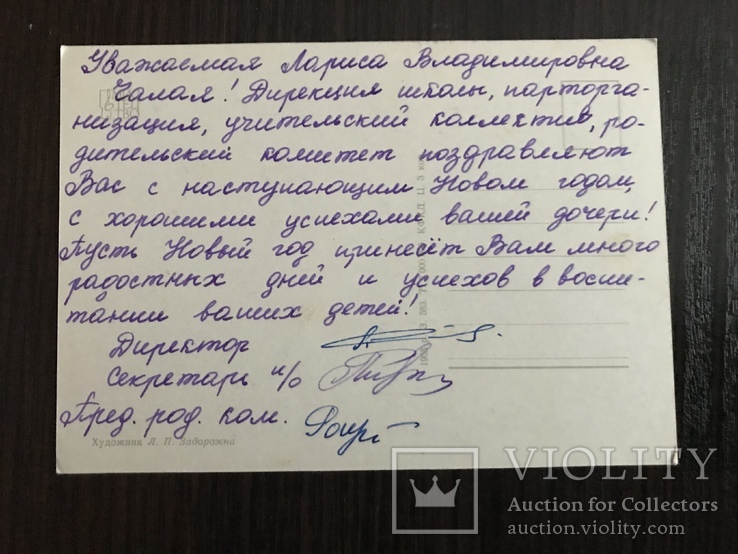 Уважаемая Лариса Владимировна
Чалая! Дирекция школы, парторга-
низация, учительский коллектив, ро-
дительский комитет поздравляют
Вас с наступающим Новом годом,
с хорошими успехами вашей дочери!
Пусть Новый год принесёт Вам много
радостных дней и успехов в воспи-
тании ваших детей!
Директор
Секретарь п/о
Пред. род. ком.
Художник Л. П. Задорожна
VIOLITY
Auction for Collectors
auction.violity.com